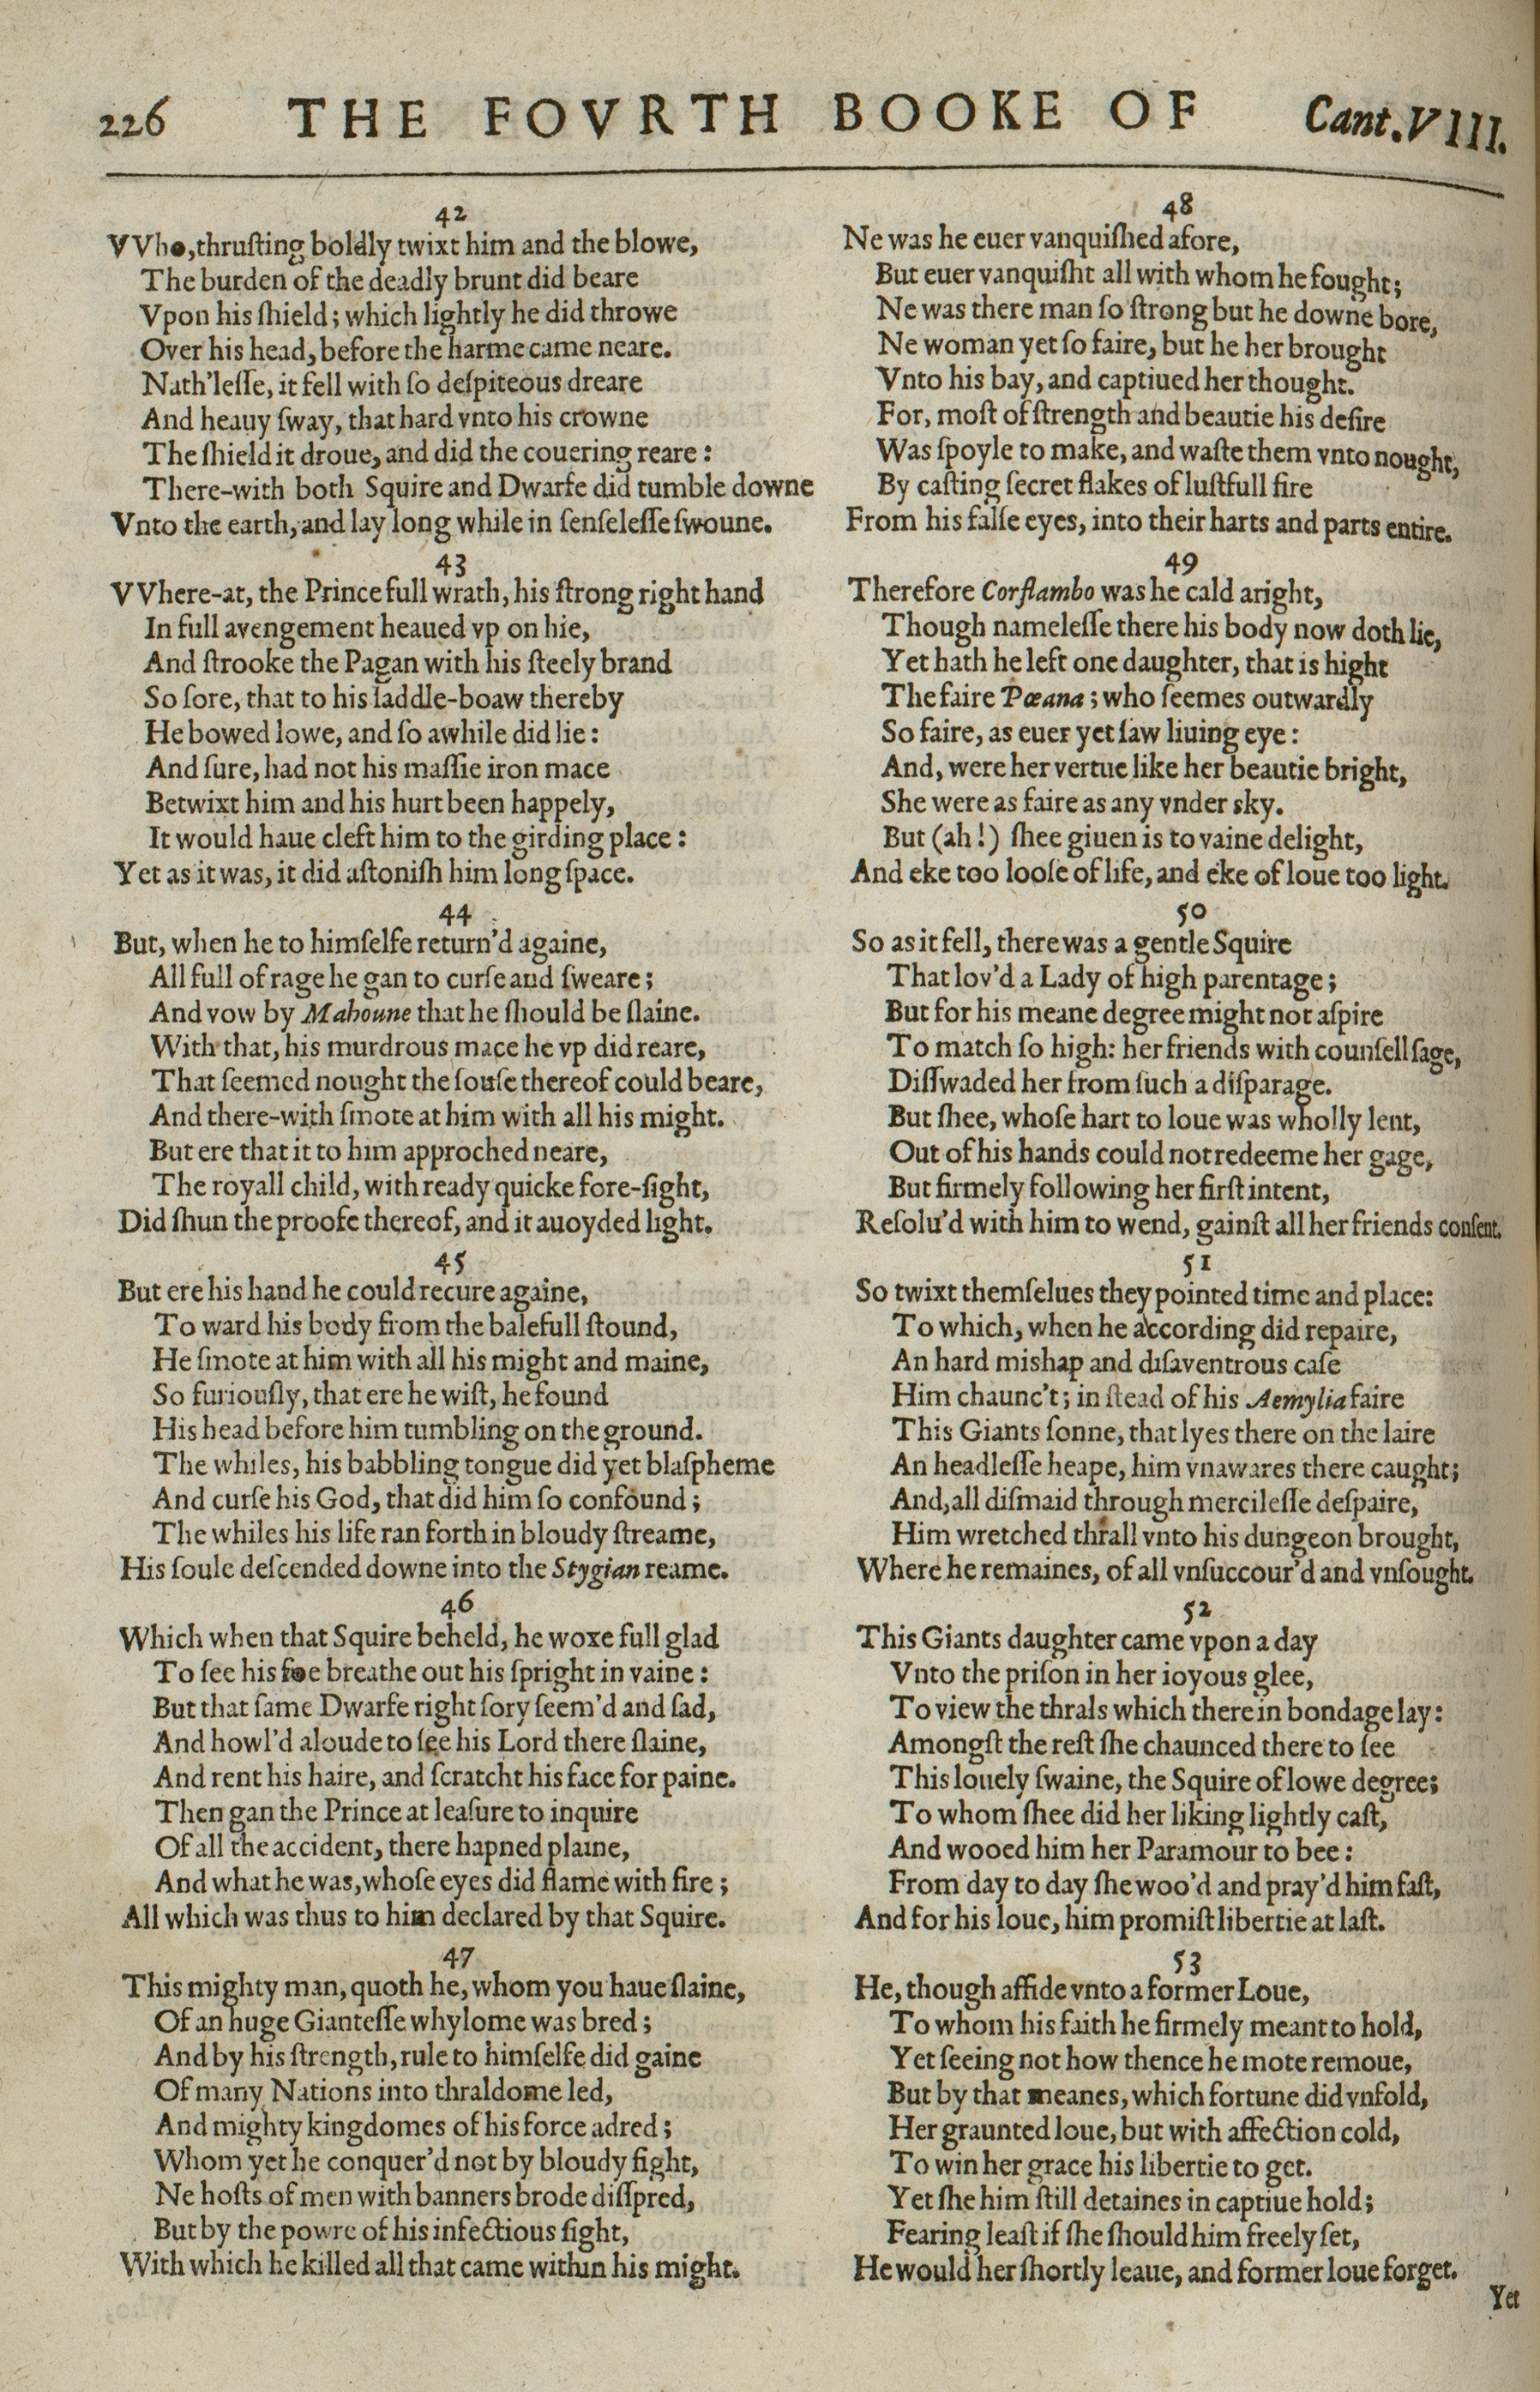 226 THE FOVRTH BOOKE OF Cant.VIII.
42
VVho, thruſting boldly twixt him and the blowe,
The burden of the deadly brunt did beare
Vpon his ſhield; which lightly he did throwe
Over his head, before the harme came neare.
Nath'leſſe, it fell with ſo deſpiteous dreare
And heauy ſway, that hard vnto his crowne
The ſhield it droue, and did the couering reare:
There-with both Squire and Dwarfe did tumble downe
Vnto the earth, and lay long while in ſenſeleſſe ſwoune.
43
VVhere-at, the Prince full wrath, his ſtrong right hand
In full avengement heaued vp on hie,
And ſtrooke the Pagan with his ſteely brand
So ſore, that to his ſaddle-boaw thereby
He bowed lowe, and ſo awhile did lie:
And ſure, had not his maſſie iron mace
Betwixt him and his hurt been happely,
It would haue cleft him to the girding place:
Yet as it was, it did aſtoniſh him long ſpace.
44
But, when he to himſelfe return'd againe,
All full of rage he gan to curſe and ſweare;
And vow by Mahoune that he ſhould be ſlaine.
With that, his murdrous mace he vp did reare,
That ſeemed nought the ſouſe thereof could beare,
And there-with ſmote at him with all his might.
But ere that it to him approched neare,
The royall child, with ready quicke fore-ſight,
Did ſhun the proofe thereof, and it auoyded light.
45
But ere his hand he could recure againe,
To ward his body from the balefull ſtound,
He ſmote at him with all his might and maine,
So furiouſly, that ere he wiſt, he found
His head before him tumbling on the ground.
The whiles, his babbling tongue did yet blaſpheme
And curſe his God, that did him ſo confound;
The whiles his life ran forth in bloudy ſtreame,
His ſoule deſcended downe into the Stygian reame.
46
Which when that Squire beheld, he woxe full glad
To ſee his foe breathe out his ſpright in vaine:
But that ſame Dwarfe right ſory ſeem'd and ſad,
And howl'd aloude to ſee his Lord there ſlaine,
And rent his haire, and ſcratcht his face for paine.
Then gan the Prince at leaſure to inquire
Of all the accident, there hapned plaine,
And what he was, whoſe eyes did flame with fire;
All which was thus to him declared by that Squire.
47
This mighty man, quoth he, whom you haue ſlaine,
Of an huge Gianteſſe whylome was bred;
And by his ſtrength, rule to himſelfe did gaine
Of many Nations into thraldome led,
And mighty kingdomes of his force adred;
Whom yet he conquer'd not by bloudy fight,
Ne hoſts of men with banners brode diſſpred,
But by the powre of his infectious ſight,
With which he killed all that came within his might.
48
Ne was he euer vanquiſhed afore,
But euer vanquiſht all with whom he fought;
Ne was there man ſo ſtrong but he downe bore,
Ne woman yet ſo faire, but he her brought
Vnto his bay, and captiued her thought.
For, moſt of ſtrength and beautie his deſire
Was ſpoyle to make, and waſte them vnto nought,
By caſting ſecret flakes of luſtfull fire
From his falſe eyes, into their harts and parts entire.
49
Therefore Corflambo was he cald aright,
Though nameleſſe there his body now doth lie,
Yet hath he left one daughter, that is hight
The faire Pœana; who ſeemes outwardly
So faire, as euer yet ſaw liuing eye:
And, were her vertue like her beautie bright,
She were as faire as any vnder sky.
But (ah!) ſhee giuen is to vaine delight,
And eke too looſe of life, and eke of loue too light.
50
So as it fell, there was a gentle Squire
That lov'd a Lady of high parentage;
But for his meane degree might not aſpire
To match ſo high: her friends with counſell ſage,
Diſſwaded her from ſuch a diſparage.
But ſhee, whoſe hart to loue was wholly lent,
Out of his hands could not redeeme her gage,
But firmely following her firſt intent,
Reſolu'd with him to wend, gainſt all her friends conſent.
51
So twixt themſelues they pointed time and place:
To which, when he according did repaire,
An hard mishap and diſaventrous caſe
Him chaunc't; in ſtead of his Aemylia faire
This Giants ſonne, that lyes there on the laire
An headleſſe heape, him vnawares there caught;
And, all diſmaid through mercileſſe deſpaire,
Him wretched thrall vnto his dungeon brought,
Where he remaines, of all vnſuccour'd and vnſought.
52
This Giants daughter came vpon a day
Vnto the priſon in her ioyous glee,
To view the thrals which there in bondage lay:
Amongſt the reſt ſhe chaunced there to ſee
This louely ſwaine, the Squire of lowe degree;
To whom ſhee did her liking lightly caſt,
And wooed him her Paramour to bee:
From day to day ſhe woo'd and pray'd him faſt,
And for his loue, him promiſt libertie at laſt.
53
He, though affide vnto a former Loue,
To whom his faith he firmely meant to hold,
Yet ſeeing not how thence he mote remoue,
But by that meanes, which fortune did vnfold,
Her graunted loue, but with affection cold,
To win her grace his libertie to get.
Yet ſhe him ſtill detaines in captiue hold;
Fearing leaſt if ſhe ſhould him freely ſet,
He would her ſhortly leaue, and former loue forget.
Yet